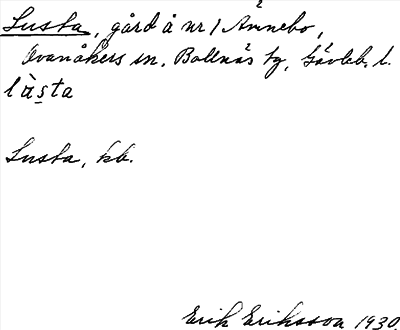 Lusta, gård å nr 1 Ännebo,
Ovanåkers sn, Bollnäs tg, Gävleb. l.
lu̇̀s̱ta
Lusta, kb.
Erik Eriksson 1930.